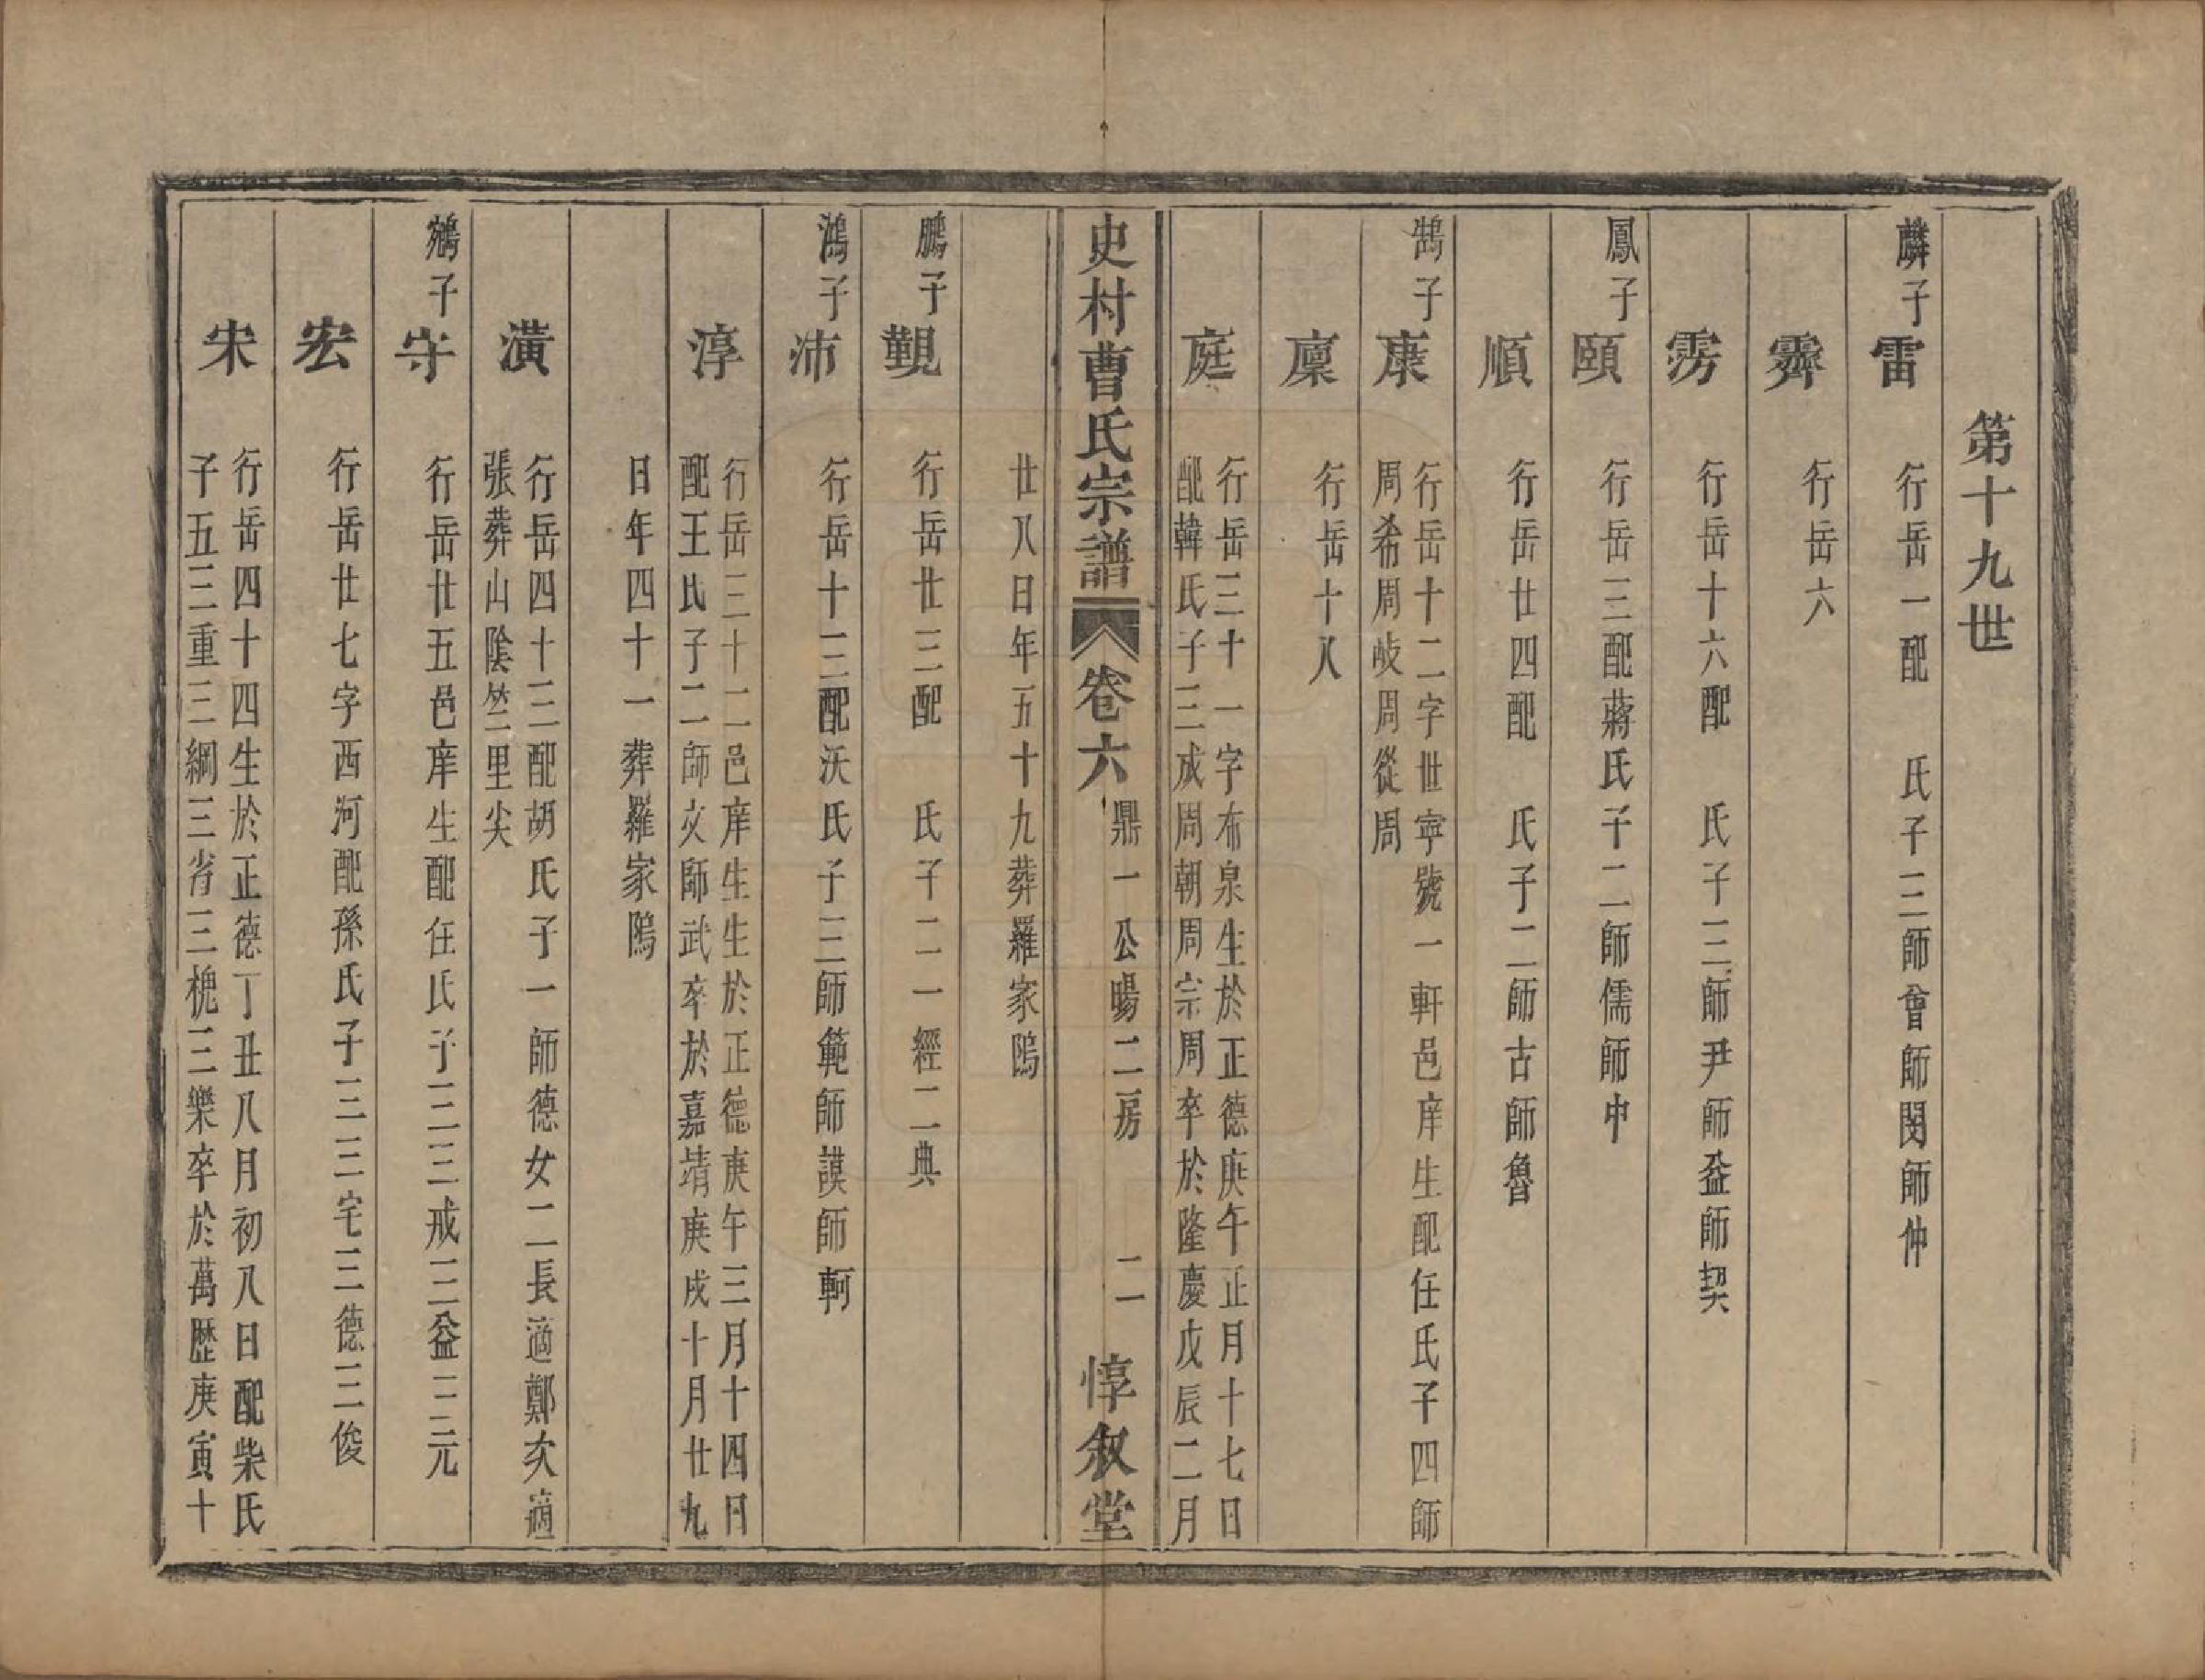 第十九世
麟子 雷 行岳一配 氏子三師會師閔師仲
霽 行岳六
雱 行岳十六配 氏子三師尹師益師契
鳳子 頤 行岳三配蔣氏子二師儒師中
順 行岳廿四配 氏子二師古師魯
鵠子 康 行岳十二字世寧號一軒邑庠生配任氏子四師
周希周岐周從周
廩 行岳十八
庭 行岳三十一字布泉生於正德庚午正月十七日
配韓氏子三成周朝周宗周卒於隆慶戊辰二月
史村曹氏宗譜 卷六 鼎一公暘二房 二 惇叙堂
廿八日年五十九葬羅家隖
鵬子 觀 行岳廿三配 氏子二一經二典
鴻子 沛 行岳十三配沃氏子三師範師謨師軻
淳 行岳三十二邑庠生生於正德庚午三月十四日
配王氏子二師文師武卒於嘉靖庚戌十月廿九
日年四十一葬羅家隖
潢 行岳四十三配胡氏子一師德女二長適鄭次適
張葬山陰竺里尖
鵷子 守 行岳廿五邑庠生配任氏子三三戒三益三元
宏 行岳廿七字西河配孫氏子三三宅三德三俊
宋 行岳四十四生於正德丁丑八月初八日配柴氏
子五三重三綱三省三槐三樂卒於萬歷庚寅十